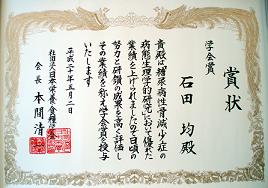 賞状
学会賞
石田 均殿
貴殿は糖尿病性骨減少症の
病態生理学的研究において優れた
業績を上げられましたので日頃の
努力と研鑽の成果を高く評価し
その業績を称え学会賞を授与
いたします
平成二十年五月二日
社団法人日本栄養・食糧学会
会長 本間清一